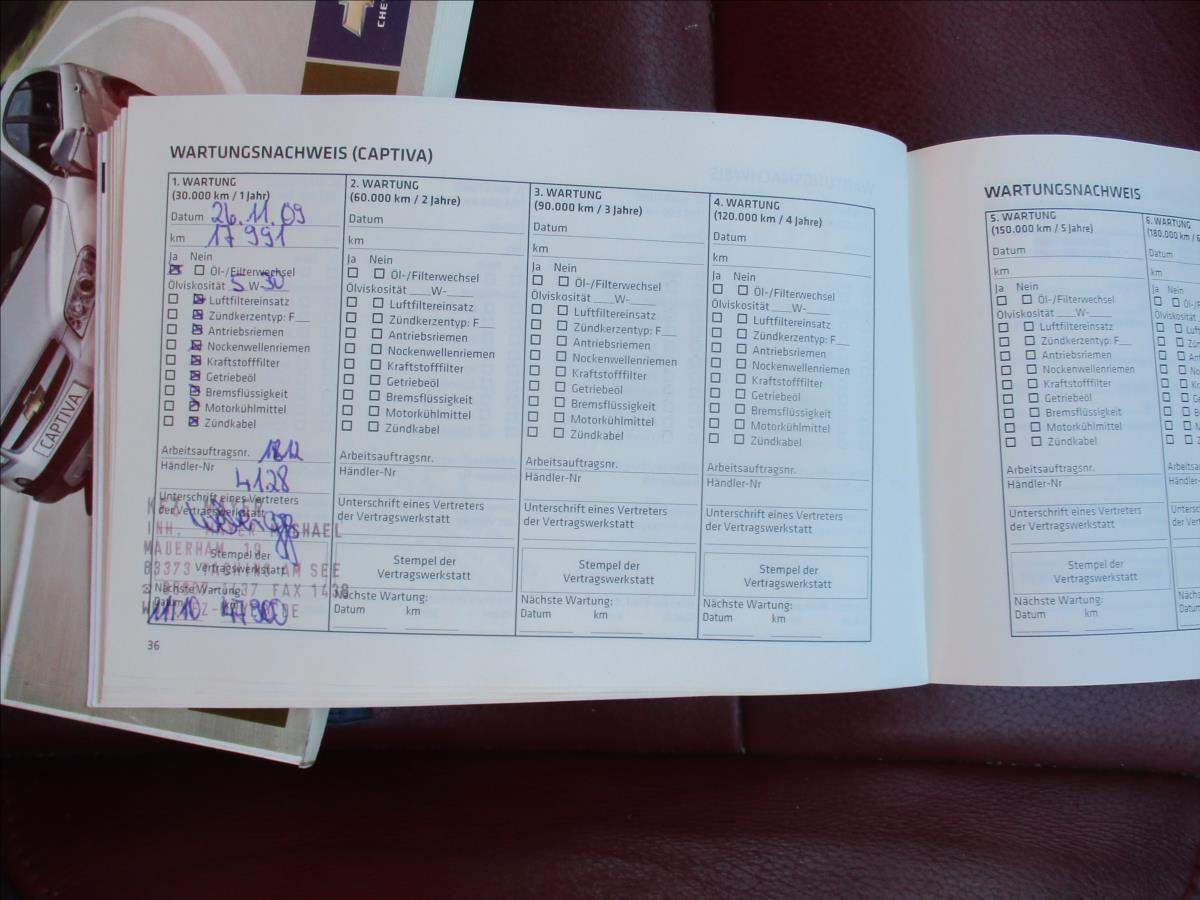 CHE
CAPTIVA
WARTUNGSNACHWEIS (CAPTIVA)
1. WARTUNG
(30.000 km / 1 Jahr)
Datum 26.11.09
km 17 991
Ja Nein
Öl-/Filterwechsel
Ölviskosität 5 W-30
Luftfiltereinsatz
Zündkerzentyp: F__
Antriebsriemen
Nockenwellenriemen
Kraftstofffilter
Getriebeöl
Bremsflüssigkeit
Motorkühlmittel
Zündkabel
Arbeitsauftragsnr.
Händler-Nr
4128
Unterschrift eines Vertreters
der Vertragswerkstatt
INH.
MAUERHAM
83373 AM SEE
Stempel der
Vertragswerkstatt
FAX 1438
Nächste Wartung:
Datum km
11/10 47900
2. WARTUNG
(60.000 km / 2 Jahre)
Datum
km
Ja Nein
Öl-/Filterwechsel
Ölviskosität ___W-____
Luftfiltereinsatz
Zündkerzentyp: F__
Antriebsriemen
Nockenwellenriemen
Kraftstofffilter
Getriebeöl
Bremsflüssigkeit
Motorkühlmittel
Zündkabel
Arbeitsauftragsnr.
Händler-Nr
Unterschrift eines Vertreters
der Vertragswerkstatt
Stempel der
Vertragswerkstatt
Nächste Wartung:
Datum km
3. WARTUNG
(90.000 km / 3 Jahre)
Datum
km
Ja Nein
Öl-/Filterwechsel
Ölviskosität ___W-____
Luftfiltereinsatz
Zündkerzentyp: F__
Antriebsriemen
Nockenwellenriemen
Kraftstofffilter
Getriebeöl
Bremsflüssigkeit
Motorkühlmittel
Zündkabel
Arbeitsauftragsnr.
Händler-Nr
Unterschrift eines Vertreters
der Vertragswerkstatt
Stempel der
Vertragswerkstatt
Nächste Wartung:
Datum km
4. WARTUNG
(120.000 km / 4 Jahre)
Datum
km
Ja Nein
Öl-/Filterwechsel
Ölviskosität ___W-____
Luftfiltereinsatz
Zündkerzentyp: F__
Antriebsriemen
Nockenwellenriemen
Kraftstofffilter
Getriebeöl
Bremsflüssigkeit
Motorkühlmittel
Zündkabel
Arbeitsauftragsnr.
Händler-Nr
Unterschrift eines Vertreters
der Vertragswerkstatt
Stempel der
Vertragswerkstatt
Nächste Wartung:
Datum km
36
WARTUNGSNACHWEIS
5. WARTUNG
(150.000 km / 5 Jahre)
Datum
km
Ja Nein
Öl-/Filterwechsel
Ölviskosität ___W-____
Luftfiltereinsatz
Zündkerzentyp: F__
Antriebsriemen
Nockenwellenriemen
Kraftstofffilter
Getriebeöl
Bremsflüssigkeit
Motorkühlmittel
Zündkabel
Arbeitsauftragsnr.
Händler-Nr
Unterschrift eines Vertreters
der Vertragswerkstatt
Stempel der
Vertragswerkstatt
Nächste Wartung:
Datum km
6. WARTUNG
(180.000 km / 6
Datum
km
Ja Nein
Ölviskosität